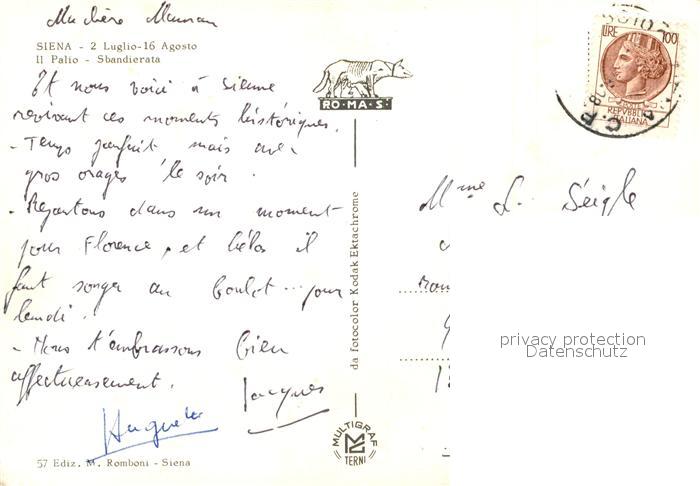 Ma chère Maman
SIENA - 2 Luglio-16 Agosto
Il Palio - Sbandierata
Et nous voici à Sienne
revivant ces moments historiques.
- Temps parfait mais avec
gros orages le soir.
- Repartons dans un moment
pour Florence, et hélas il
faut songer au boulot... pour
lundi.
- Nous t'embrassons bien
affectueusement.
Jacques
Huguette
57 Ediz. M. Romboni - Siena
RO·MA·S·
da fotocolor Kodak Ektachrome
MULTIGRAF
TERNI
LIRE 100
POSTE
REPVBBLICA
ITALIANA
C.P.
Mme L. Seigle
privacy protection
Datenschutz